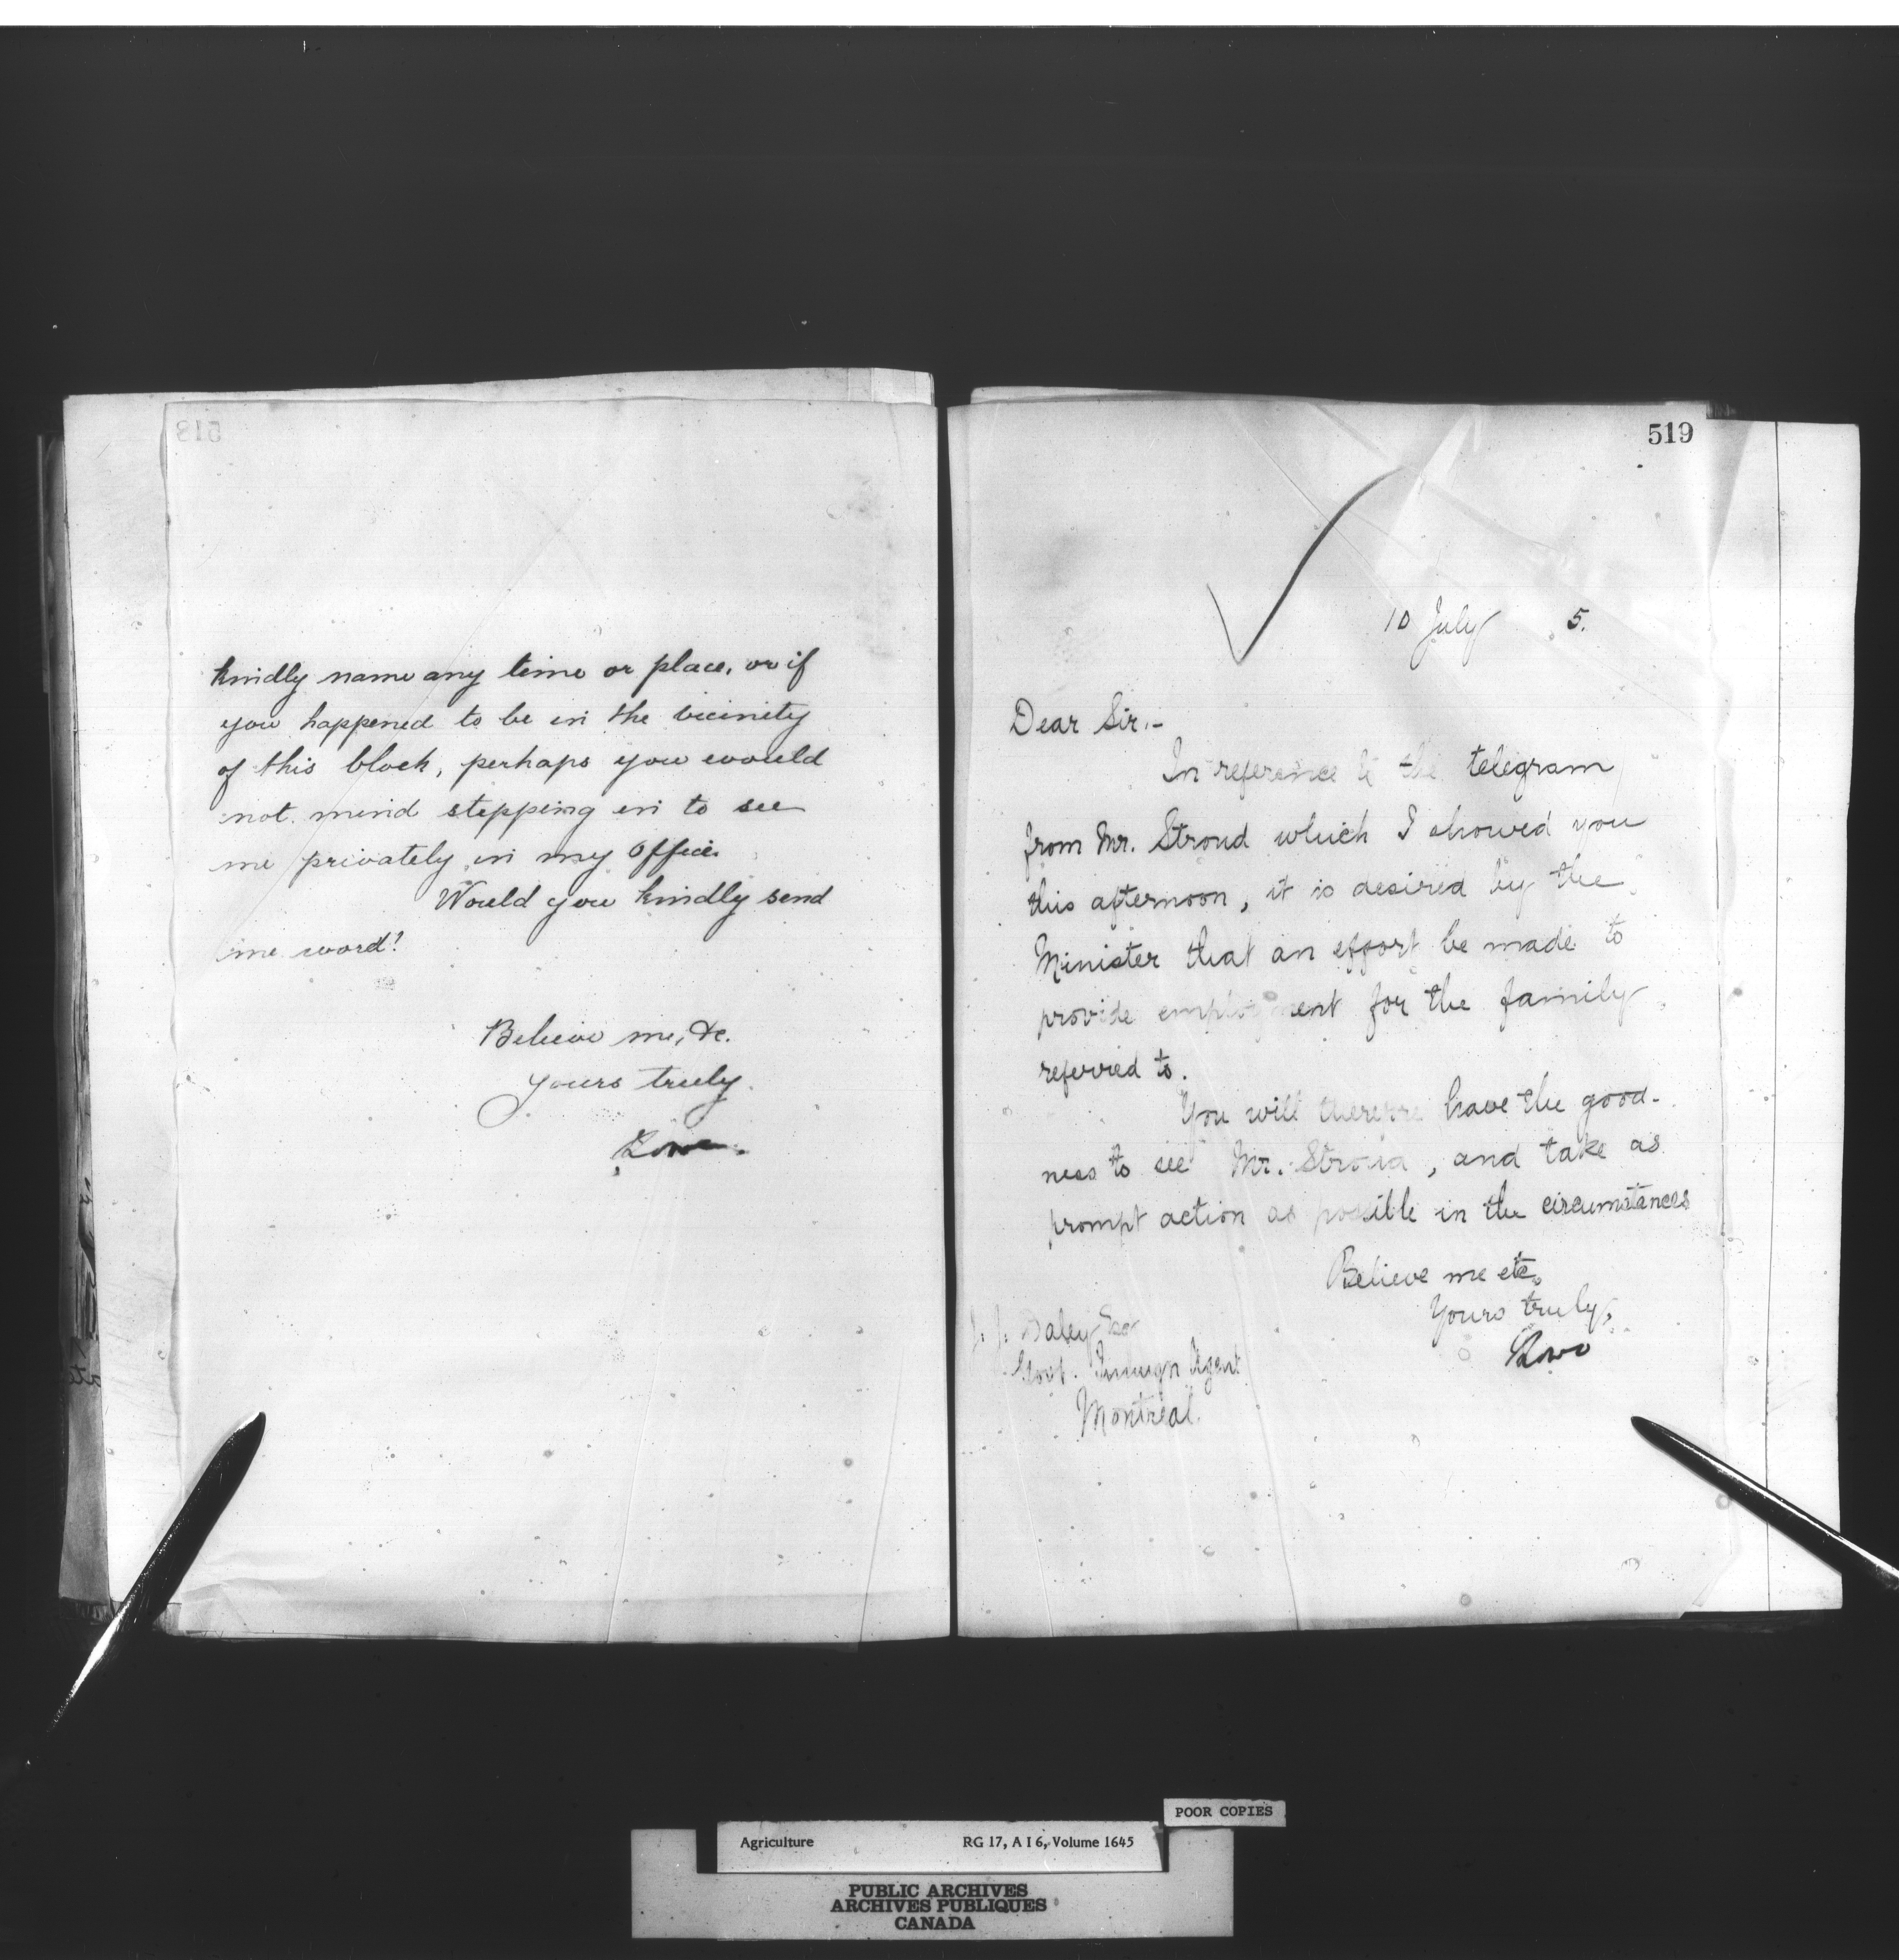 518
kindly name any time or place, or if
you happened to be in the vicinity
of this block, perhaps you would
not mind stepping in to see
me privately in my Office.
Would you kindly send
me word?
Believe me, &c.
Yours truly.
Lowe.
519
10 July 5.
Dear Sir,-
In reference to the telegram
from Mr. Stroud which I showed you
this afternoon, it is desired by the
Minister that an effort be made to
provide employment for the family
referred to.
You will therefore have the good-
ness to see Mr. Stroud, and take as
prompt action as possible in the circumstances
Believe me etc.
Yours truly,
Lowe
J. J. Daley Esqr
Govt. Immign Agent
Montreal.
POOR COPIES
Agriculture RG 17, A I 6, Volume 1645
PUBLIC ARCHIVES
ARCHIVES PUBLIQUES
CANADA